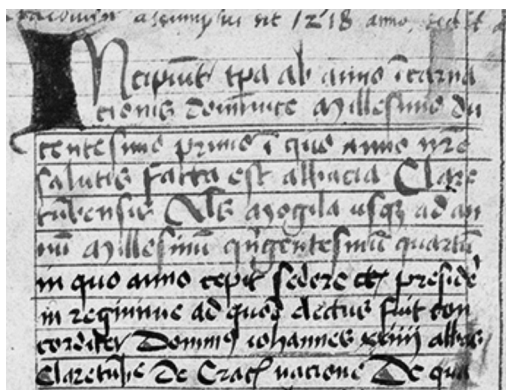 assumptus sit 1218 anno
Incipiunt tpa ab anno icarna
cionis dominice Millesimo du
centesimo primo i quo anno nre
salutis facta est abbacia Clare
tubensis als Mogila usq ad an
nu Millesimu qngentesimu quartu
in quo anno cepit sedere et preside
in regimine ad quod electus fuit con
corditer Dominus iohannes xxiiii abbas
Claretube De Crac nacione De qua